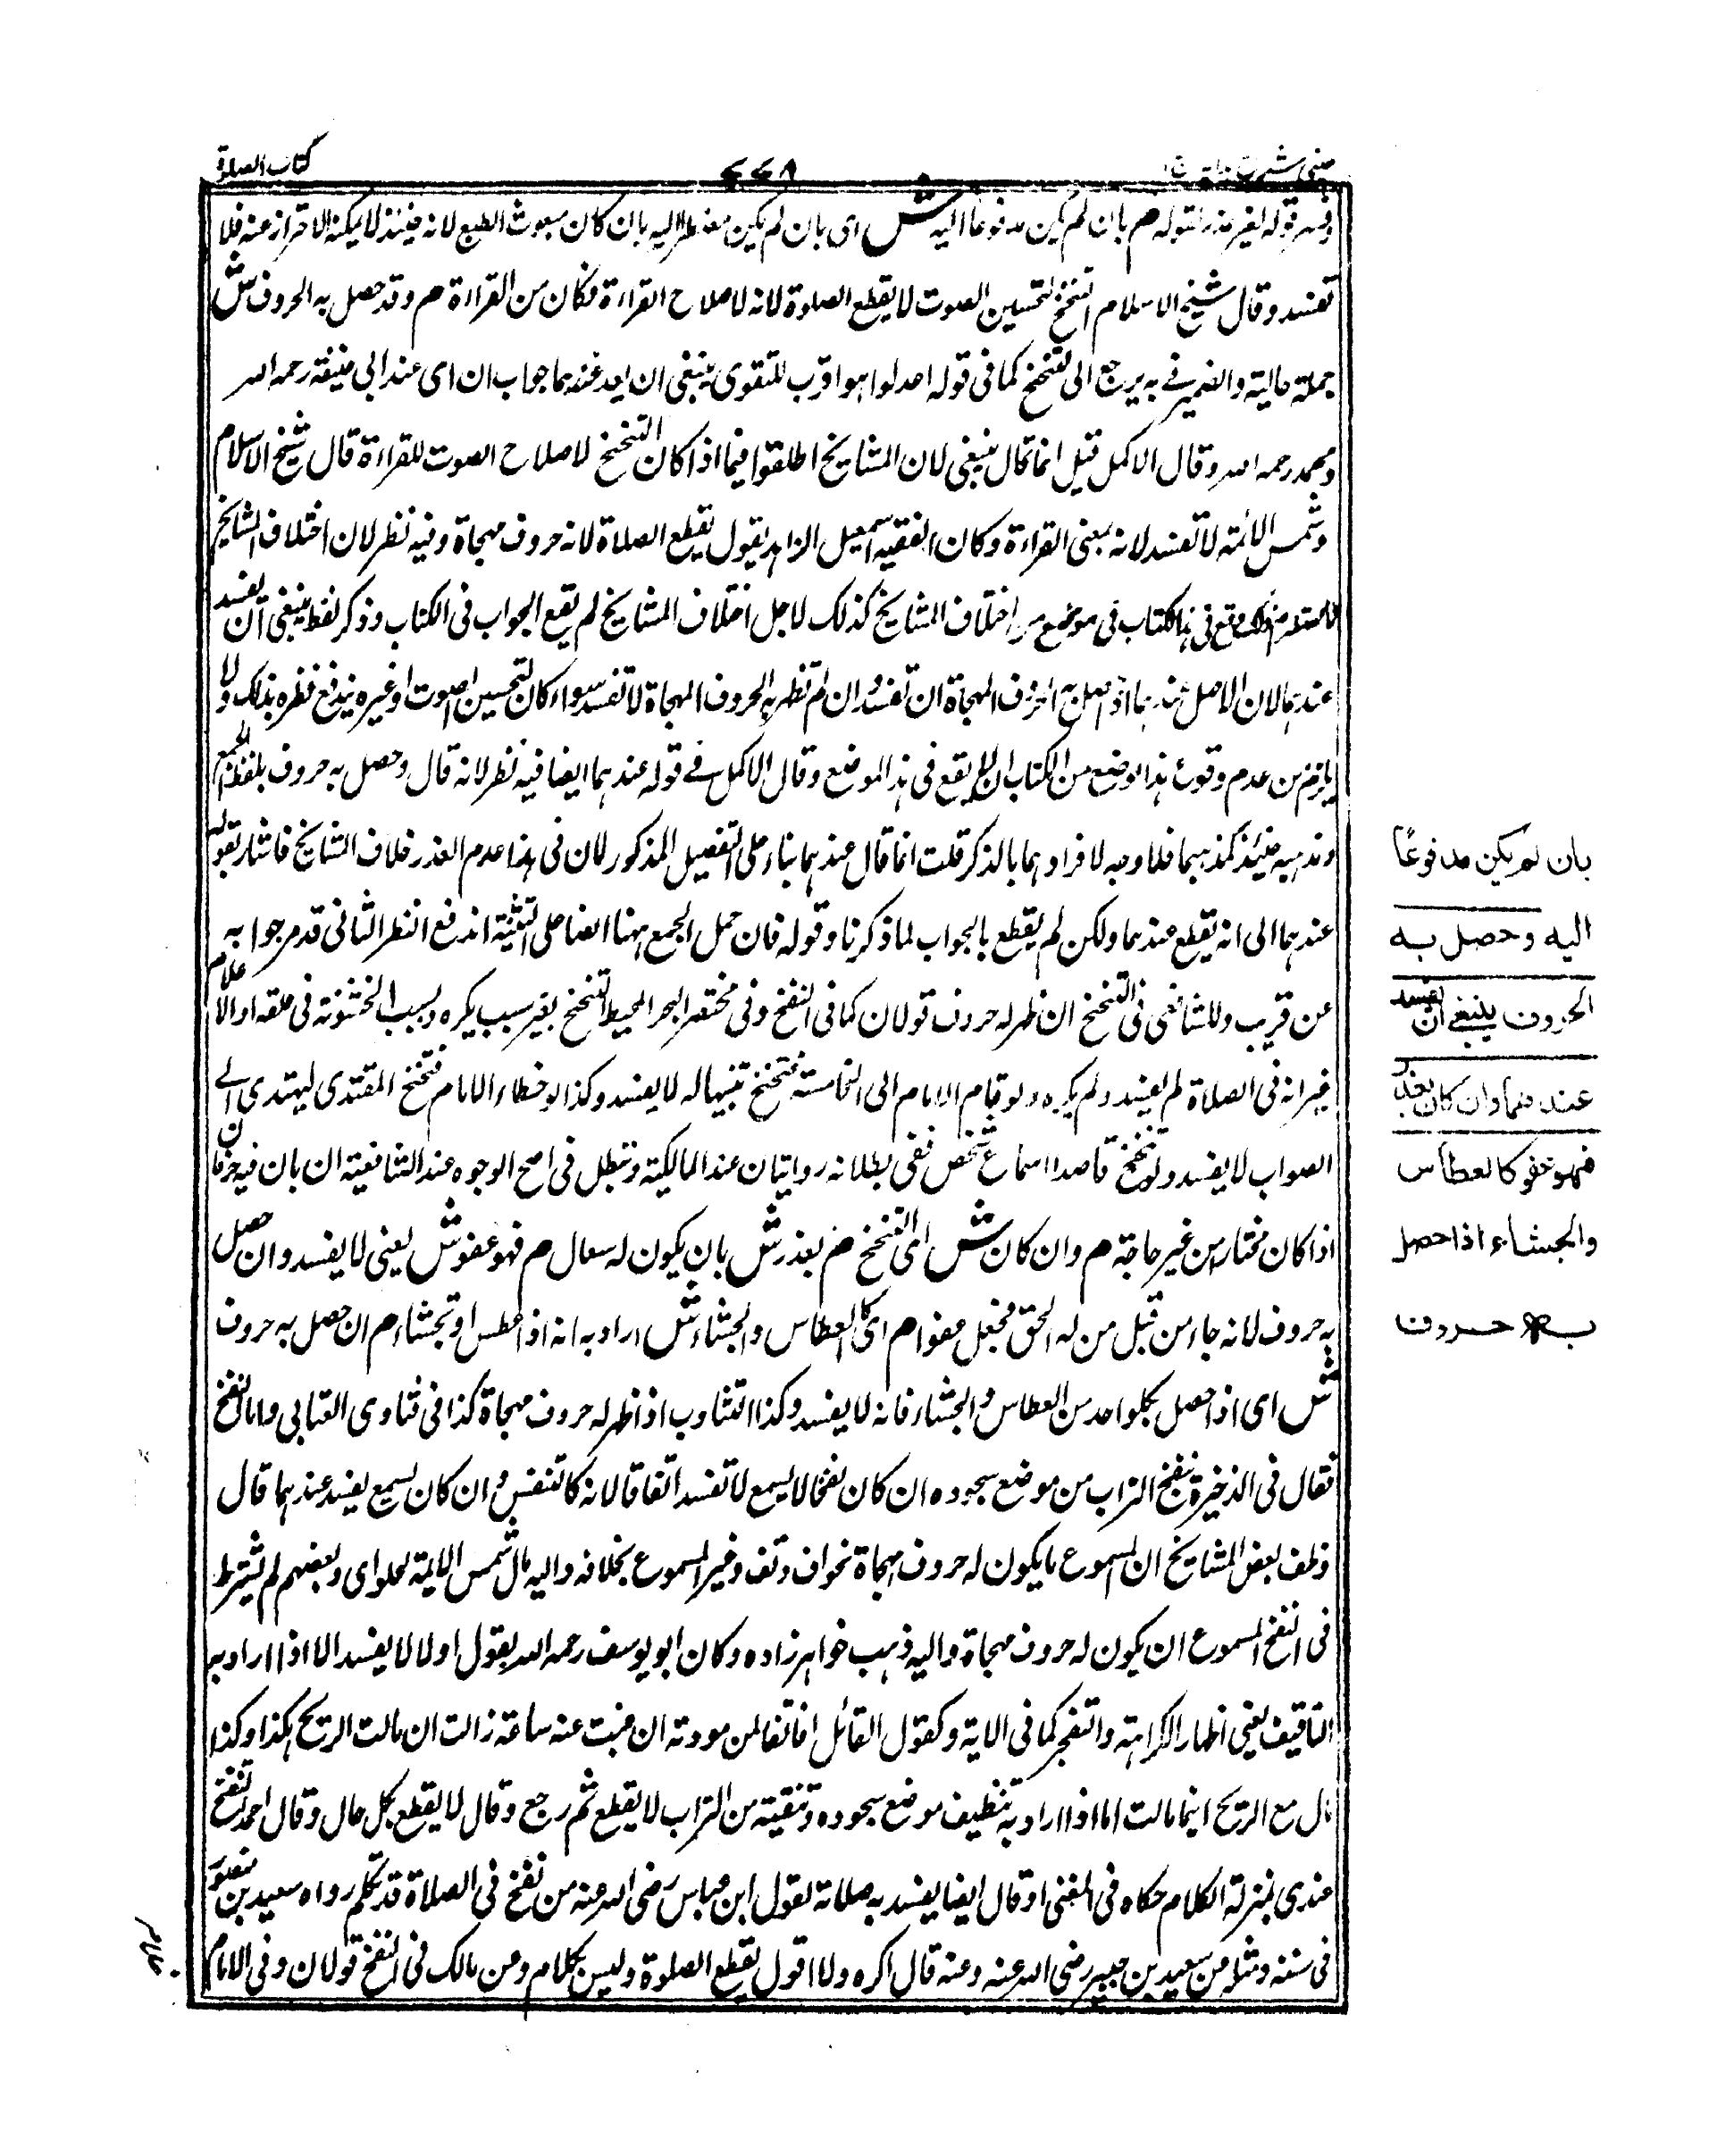 كتاب الصلوة
٧٧٨
عينى شرح هداية ج ١
وفسر قوله لغير عذر بقوله م بان لم يكن مدفوعا اليه ش اى بان لم يكن مضطرا اليه بان كان مبعوث الطبع لانه حينئذ لا يمكنه الاحتراز عنه فلا
تفسد وقال شيخ الاسلام التنحنح لتحسين الصوت لا يقطع الصلوة لانه لاصلاح القراءة فكان من القراءة م وقد حصل به الحروف ش
جملة حالية والضمير فى به يرجع الى التنحنح كما فى قوله اعدلوا هو اقرب للتقوى ينبغى ان يفسد عندهما جواب ان اى عند ابى حنيفة رحمه الله
ومحمد رحمه الله وقال الاكمل قيل انما قال ينبغى لان المشايخ اطلقوا فيما اذا كان التنحنح لاصلاح الصوت للقراءة قال شيخ الاسلام
وشمس الائمة لا تفسد لانه بمعنى القراءة وكان الفقيه اسمعيل الزاهد يقول يقطع الصلاة لانه حروف مهجاة وفيه نظر لان اختلاف المشايخ
وقع فى هذا الكتاب فى موضع من اختلاف المشايخ كذلك لاجل اختلاف المشايخ لم يقع الجواب فى الكتاب وذكر لفظ ينبغى ان يفسد
عندهما لان الاصل عندهما اذا حصل به الحروف المهجاة ان تفسد وان لم تظهر به الحروف المهجاة لا تفسد سواء كان لتحسين الصوت او غيره يندفع نظره بذلك ولا
يلزم من عدم وقوع هذا الوضع من الكتاب ان لا يقع فى هذا الموضع وقال الاكمل فى قوله عندهما ايضا فيه نظر لانه قال وحصل به حروف بلفظ الجمع
ومذهبه حينئذ كمذهبهما فلا وجه لافرادهما بالذكر قلت انما قال عندهما بناء على التفصيل المذكور لان فى هذا عدم العذر خلاف المشايخ فاشار بقوله
عندهما الى انه يقطع عندهما ولكن لم يقطع بالجواب لما ذكرنا وقوله فان حمل الجمع ههنا ايضا على التثنية اندفع النظر الثانى قد مر جوابه
عن قريب وللشافعى فى التنحنح ان ظهر له حروف قولان كما فى النفخ وفى مختصر البحر المحيط التنحنح بغير سبب يكره وبسبب الخشونة فى حلقه او الاعلام
غيرانه فى الصلاة لم يفسد ولم يكره ولو قام الامام الى الخامسة فتنحنح تنبيها له لا يفسد وكذا لو خطاء الامام فتنحنح المقتدى ليهتدى الى
الصواب لا يفسد ولو تنحنح قاصدا اسماع شخص ففى بطلانه روايتان عند المالكية وتبطل فى اصح الوجوه عند الشافعية ان بان فيه حرفان
اذا كان مختارا من غير حاجة م وان كان ش اى التنحنح م بعذر ش بان يكون له سعال م فهو عفو ش يعنى لا يفسد وان حصل
به حروف لانه جاء من قبل من له الحق فجعل عفوا م اى كالعطاس والجشاء ش اراد به انه اذا عطس او تجشاء م ان حصل به حروف
ش اى اذا حصل بكل واحد من العطاس والجشاء فانه لا يفسد وكذا التثاوب اذا ظهر له حروف مهجاة كذا فى فتاوى العتابى واما النفخ
فقال فى الذخيرة نفخ التراب من موضع سجوده ان كان نفخا لا يسمع لا تفسد اتفاقا لانه كالتنفس وان كان يسمع يفسد عندهما قال
وظن بعض المشايخ ان المسموع ما يكون له حروف مهجاة نحو اف وتف وغير المسموع بخلافه واليه مال شمس الائمة الحلوانى وبعضهم لم يشترط
فى النفخ المسموع ان يكون له حروف مهجاة واليه ذهب خواهرزاده وكان ابو يوسف رحمه الله يقول اولا لا يفسد الا اذا اراد به
التافيف يعنى اظهار الكراهة والتفجر كما فى الاية وكقول القائل افا تفا لمن مودته ان غبت عنه ساعة زالت ان مالت الريح هكذا وكذا
مال مع الريح اينما مالت اما اذا اراد به تنظيف موضع سجوده وتنقيته من التراب لا يقطع ثم رجع وقال لا يقطع بكل حال وقال احمد النفخ
عندى بمنزلة الكلام حكاه فى المغنى وقال ايضا يفسد به صلاته لقول ابن عباس رضى الله عنه من نفخ فى الصلاة فقد تكلم رواه سعيد بن منصور
فى سننه ومثله من سعيد بن جبير رضى الله عنه وعنه قال اكره ولا اقول يقطع الصلوة وليس بكلام وعن مالك فى النفخ قولان وفى الامام
بان لم يكن مدفوعًا
اليه وحصل به
الحروف ينبغى ان يفسد
عندهما وان كان بعذر
فهو عفو كالعطاس
والجشاء اذا حصل
به حروف